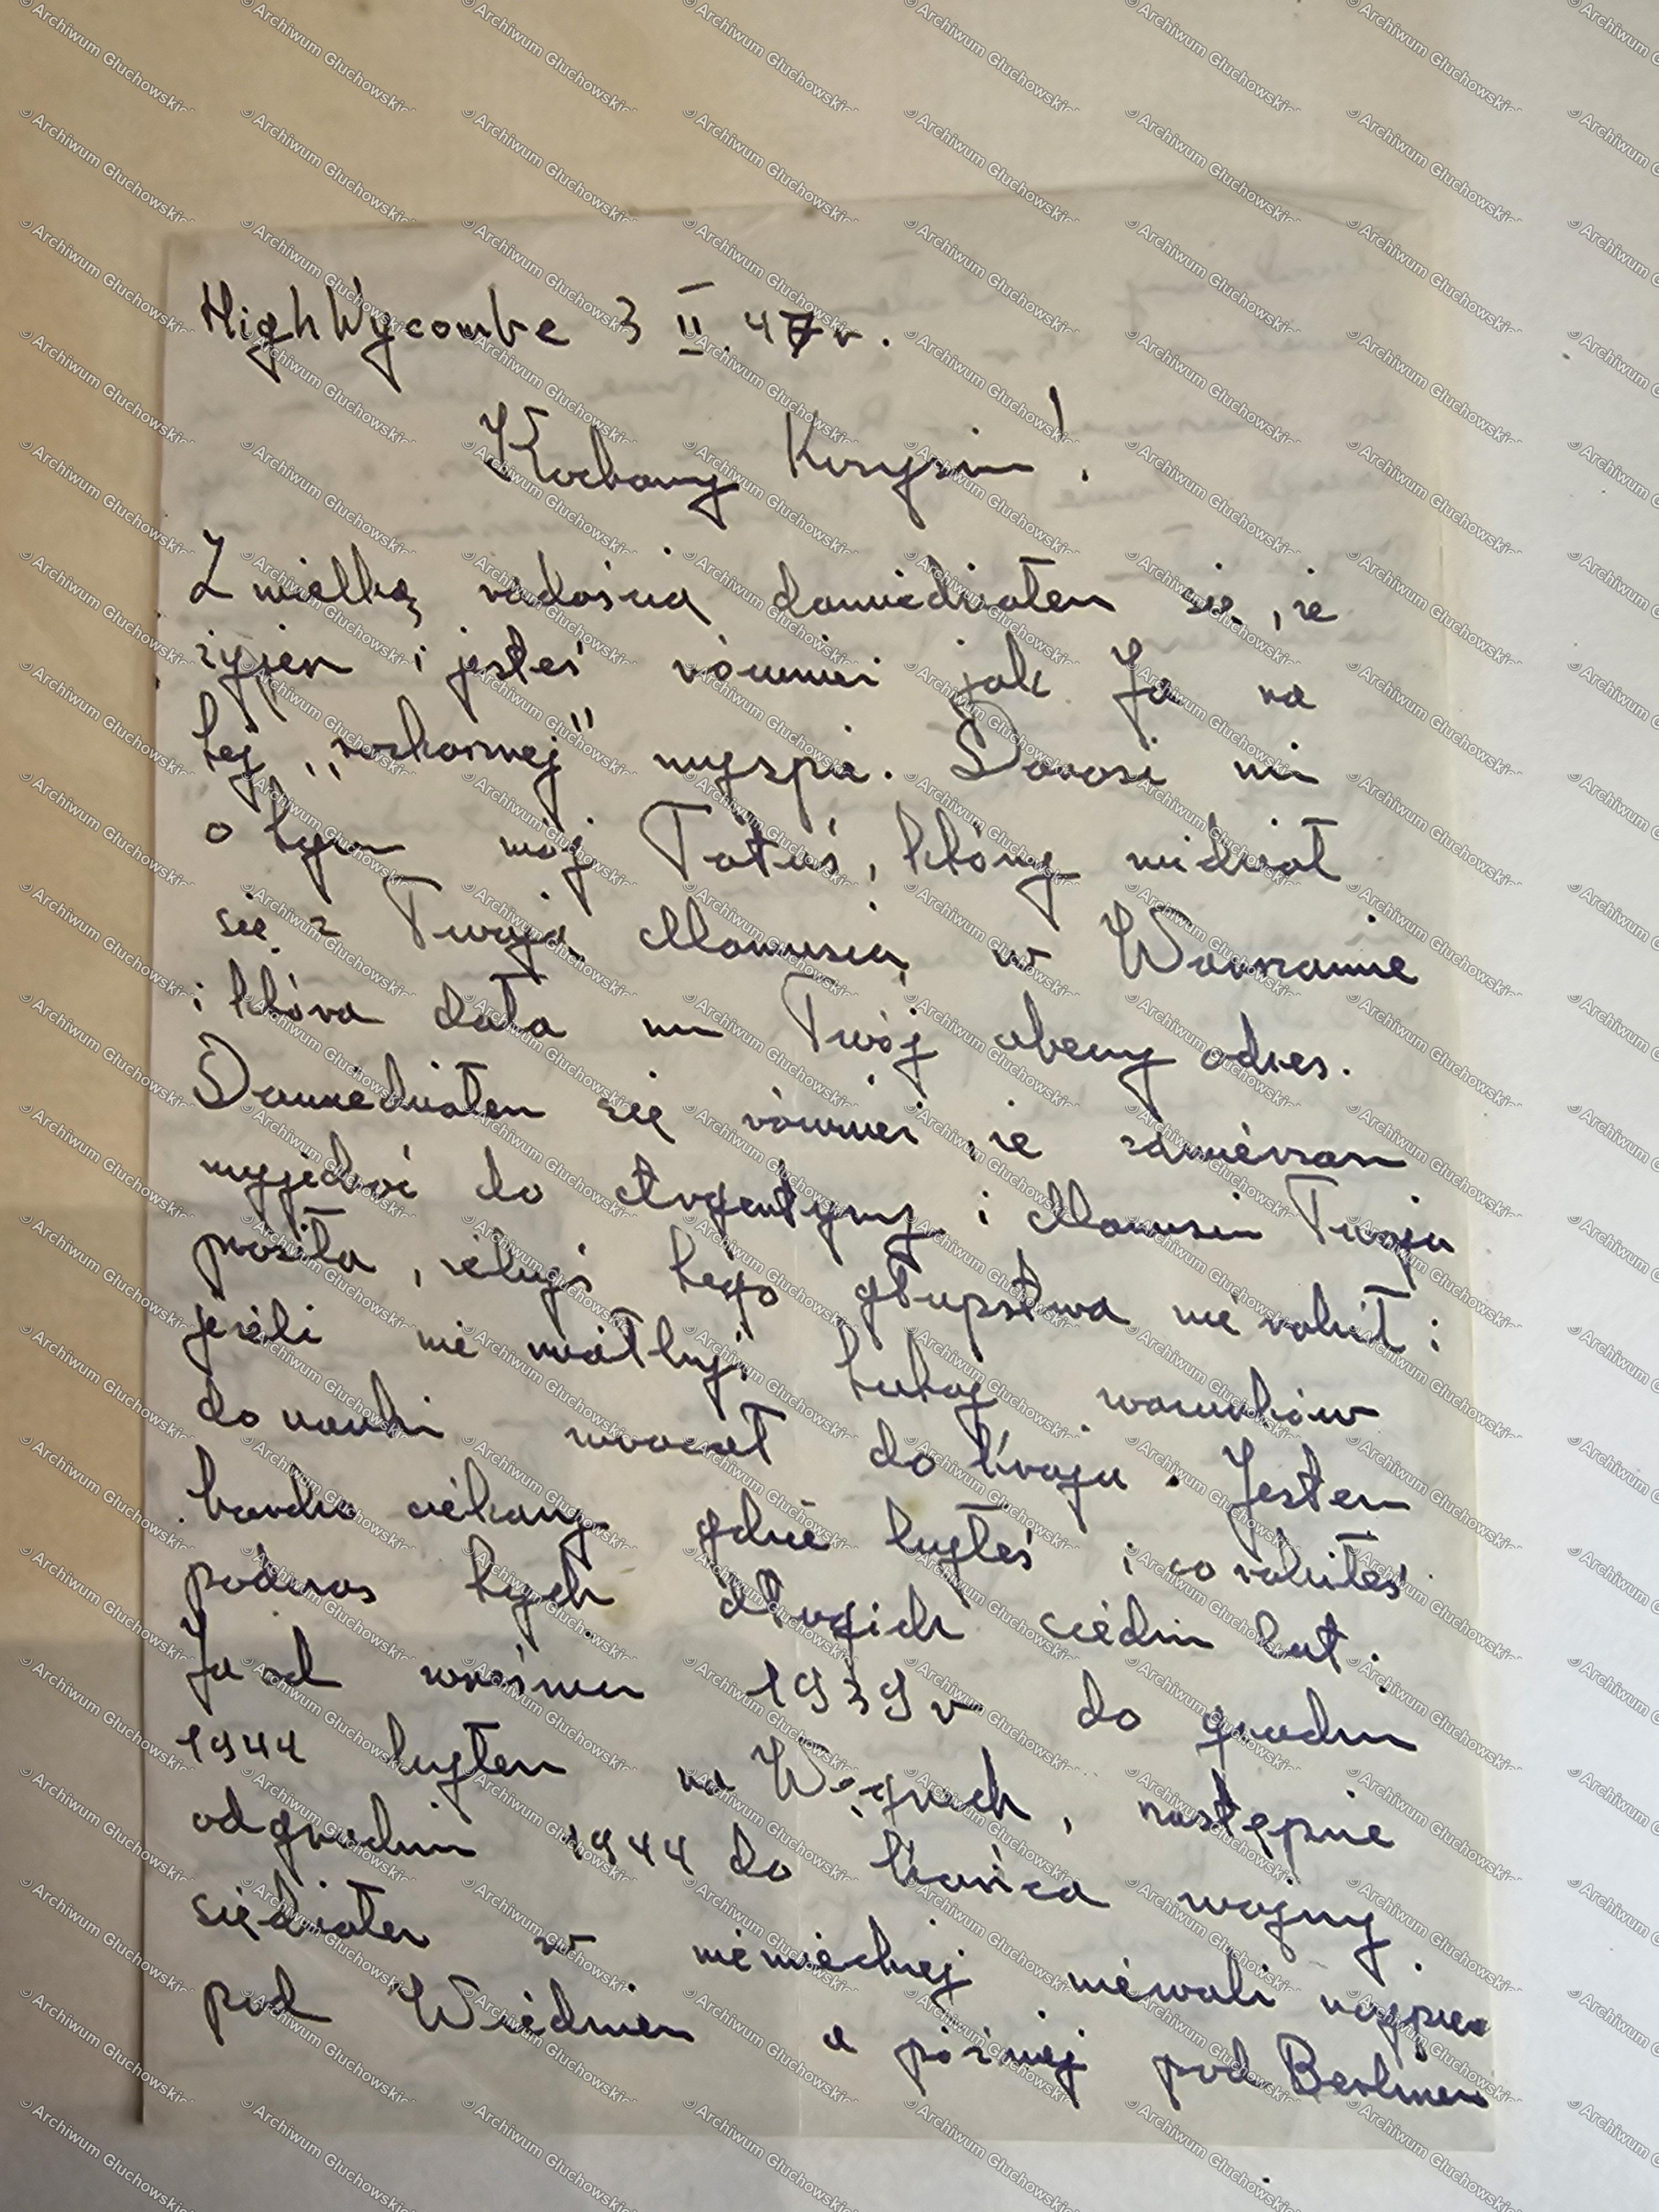 High Wycombe 3 II. 47 r.
Kochany Krzysiu!
Z wielką radością dowiedziałem się, że
żyjesz i jesteś również jak Ja na
tej "rozkosznej" wyspie. Donosi mi
o tym mój Tatuś, który widział
się z Twoją Mamusią w Warszawie
i która dała mu Twój obecny adres.
Dowiedziałem się również, że zamierzasz
wyjechać do Argentyny i Mamusia Twoja
prosiła, żebyś tego głupstwa nie robił i
jeżeli nie miałbyś tutaj warunków
do nauki wracał do kraju. Jestem
bardzo ciekawy gdzie byłeś i co robiłeś
podczas tych długich siedmiu lat.
Ja od września 1939 r do grudnia
1944 byłem na Węgrzech, następnie
od grudnia 1944 do końca wojny
siedziałem w niemieckiej niewoli najpierw
pod Wiedniem a później pod Berlinem
© Archiwum Głuchowskich